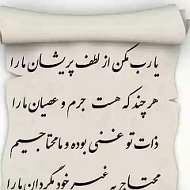 یارب مکن از لطف پریشان ما را
هر چند که هست جرم و عصیان ما را
ذات تو غنی بوده و ما محتاجیم
محتاج به غیر خود مگردان ما را